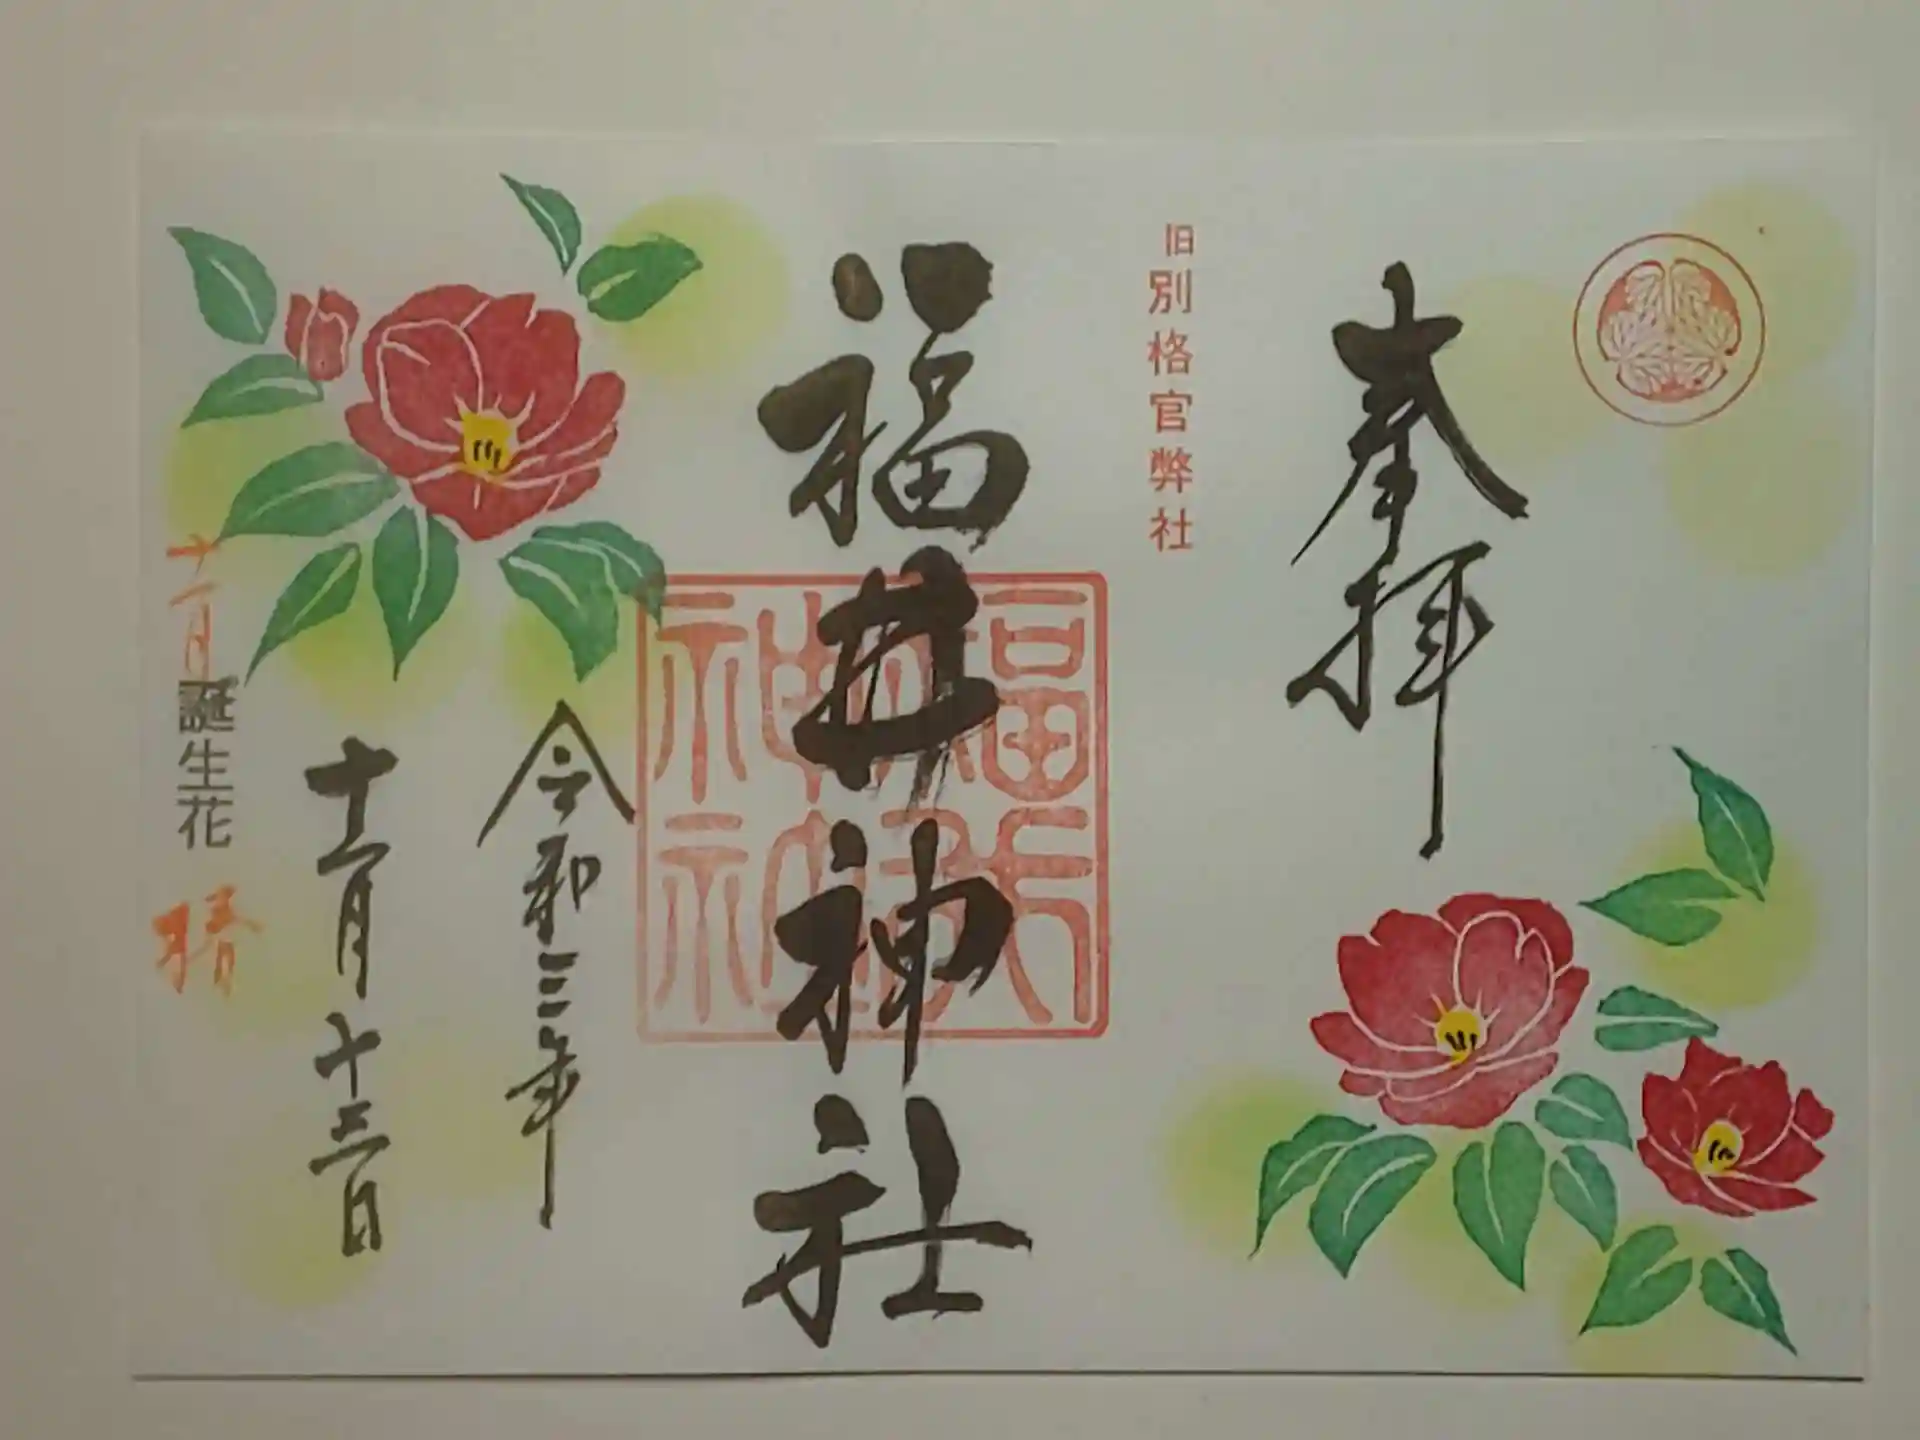 奉拝
旧別格官弊社
福井神社
令和三年
十一月十三日
十一月誕生花 椿